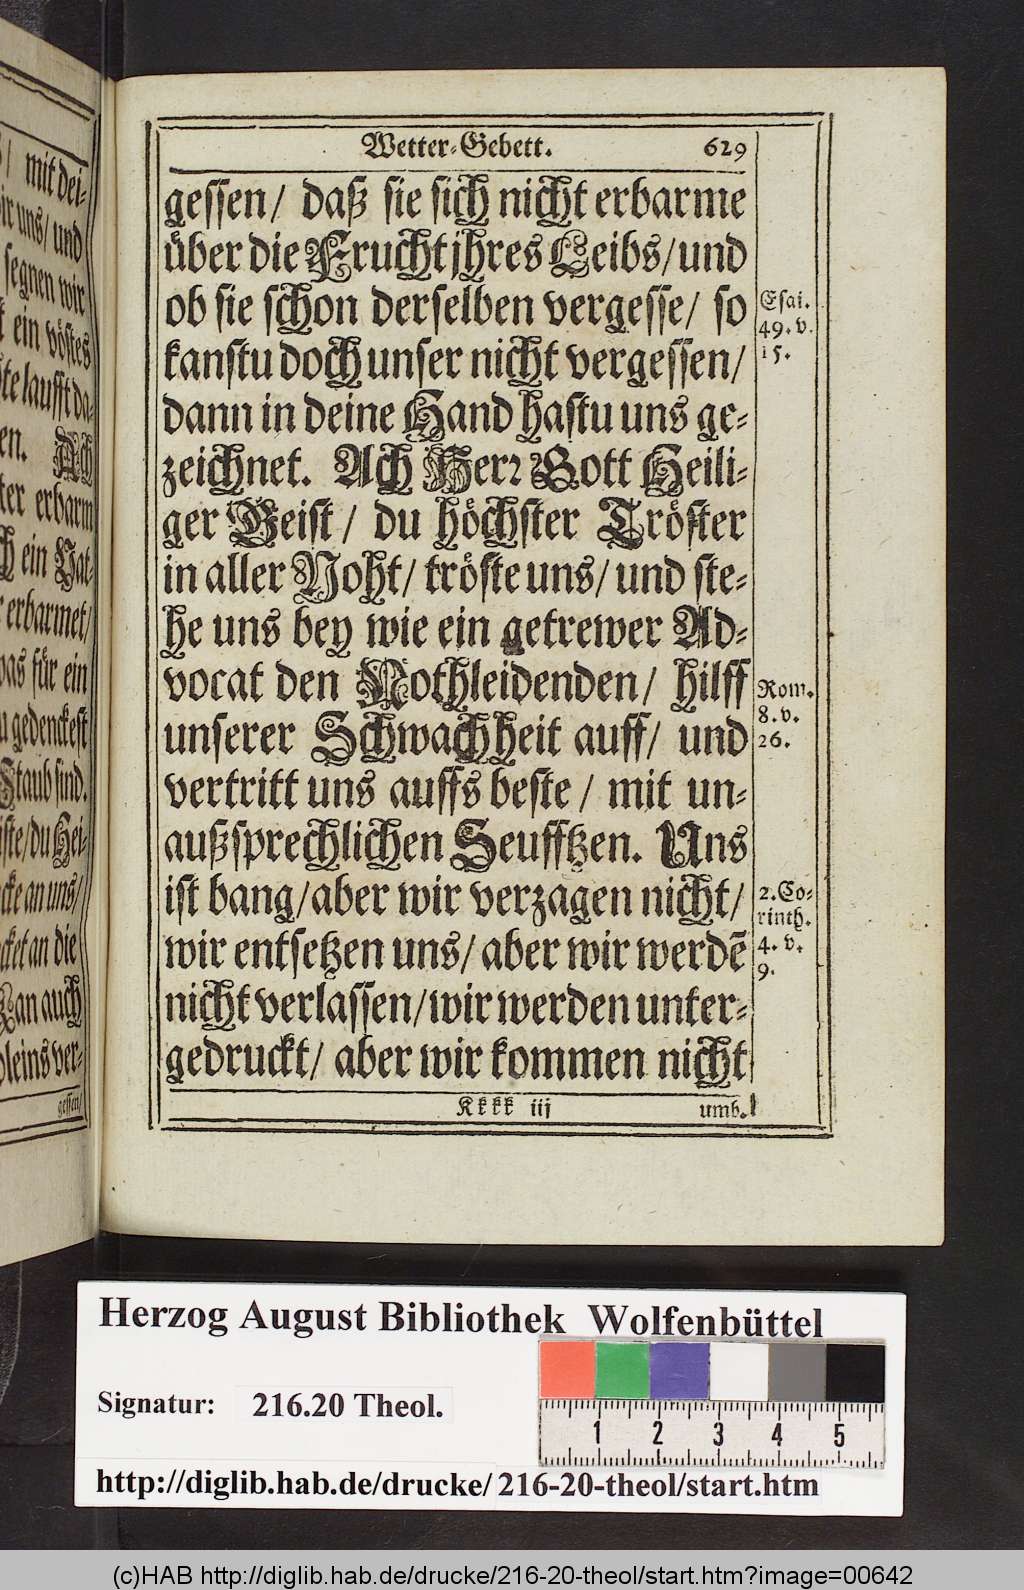 mit dei-
wir uns/ und
segnen wir
ein vöstes
laufft da-
Ach
erbarm
ein Vat-
erbarmet/
was für ein
du gedenckest
Staub sind.
du Hei-
an uns/
an die
Kan auch
ver-
gessen/
Wetter-Gebett. 629
gessen/ daß sie sich nicht erbarme
über die Frucht jhres Leibs/ und
ob sie schon derselben vergesse/ so
kanstu doch unser nicht vergessen/
dann in deine Hand hastu uns ge-
zeichnet. Ach Herr Gott Heili-
ger Geist/ du höchster Tröster
in aller Noht/ tröste uns/ und ste-
he uns bey wie ein getrewer Ad-
vocat den Nothleidenden/ hilff
unserer Schwachheit auff/ und
vertritt uns auffs beste/ mit un-
außsprechlichen Seufftzen. Uns
ist bang/ aber wir verzagen nicht/
wir entsetzen uns/ aber wir werdē
nicht verlassen/ wir werden unter-
gedruckt/ aber wir kommen nicht
Kkkk iij umb.
Esai.
49. v.
15.
Rom.
8. v.
26.
2. Co-
rinth.
4. v.
9.
Herzog August Bibliothek Wolfenbüttel
Signatur: 216.20 Theol.
1 2 3 4 5
http://diglib.hab.de/drucke/216-20-theol/start.htm
(c)HAB http://diglib.hab.de/drucke/216-20-theol/start.htm?image=00642